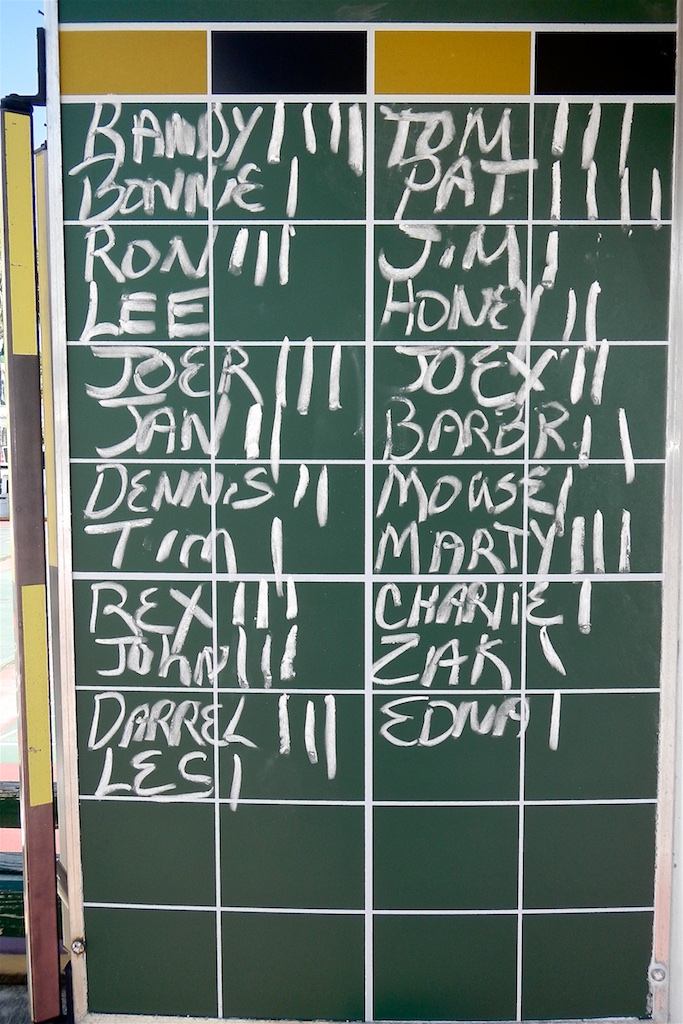 BANDY IIII
BONNIE I
RON III
LEE
JOER III
JAN II
DENNIS II
TIM I
REX III
JOHN III
DARREL III
LES I
TOM III
PAT IIII
JIM I
HONEY II
JOEX II
BARBR II
MOUSE I
MARTY III
CHARLIE I
ZAK I
EDNA I